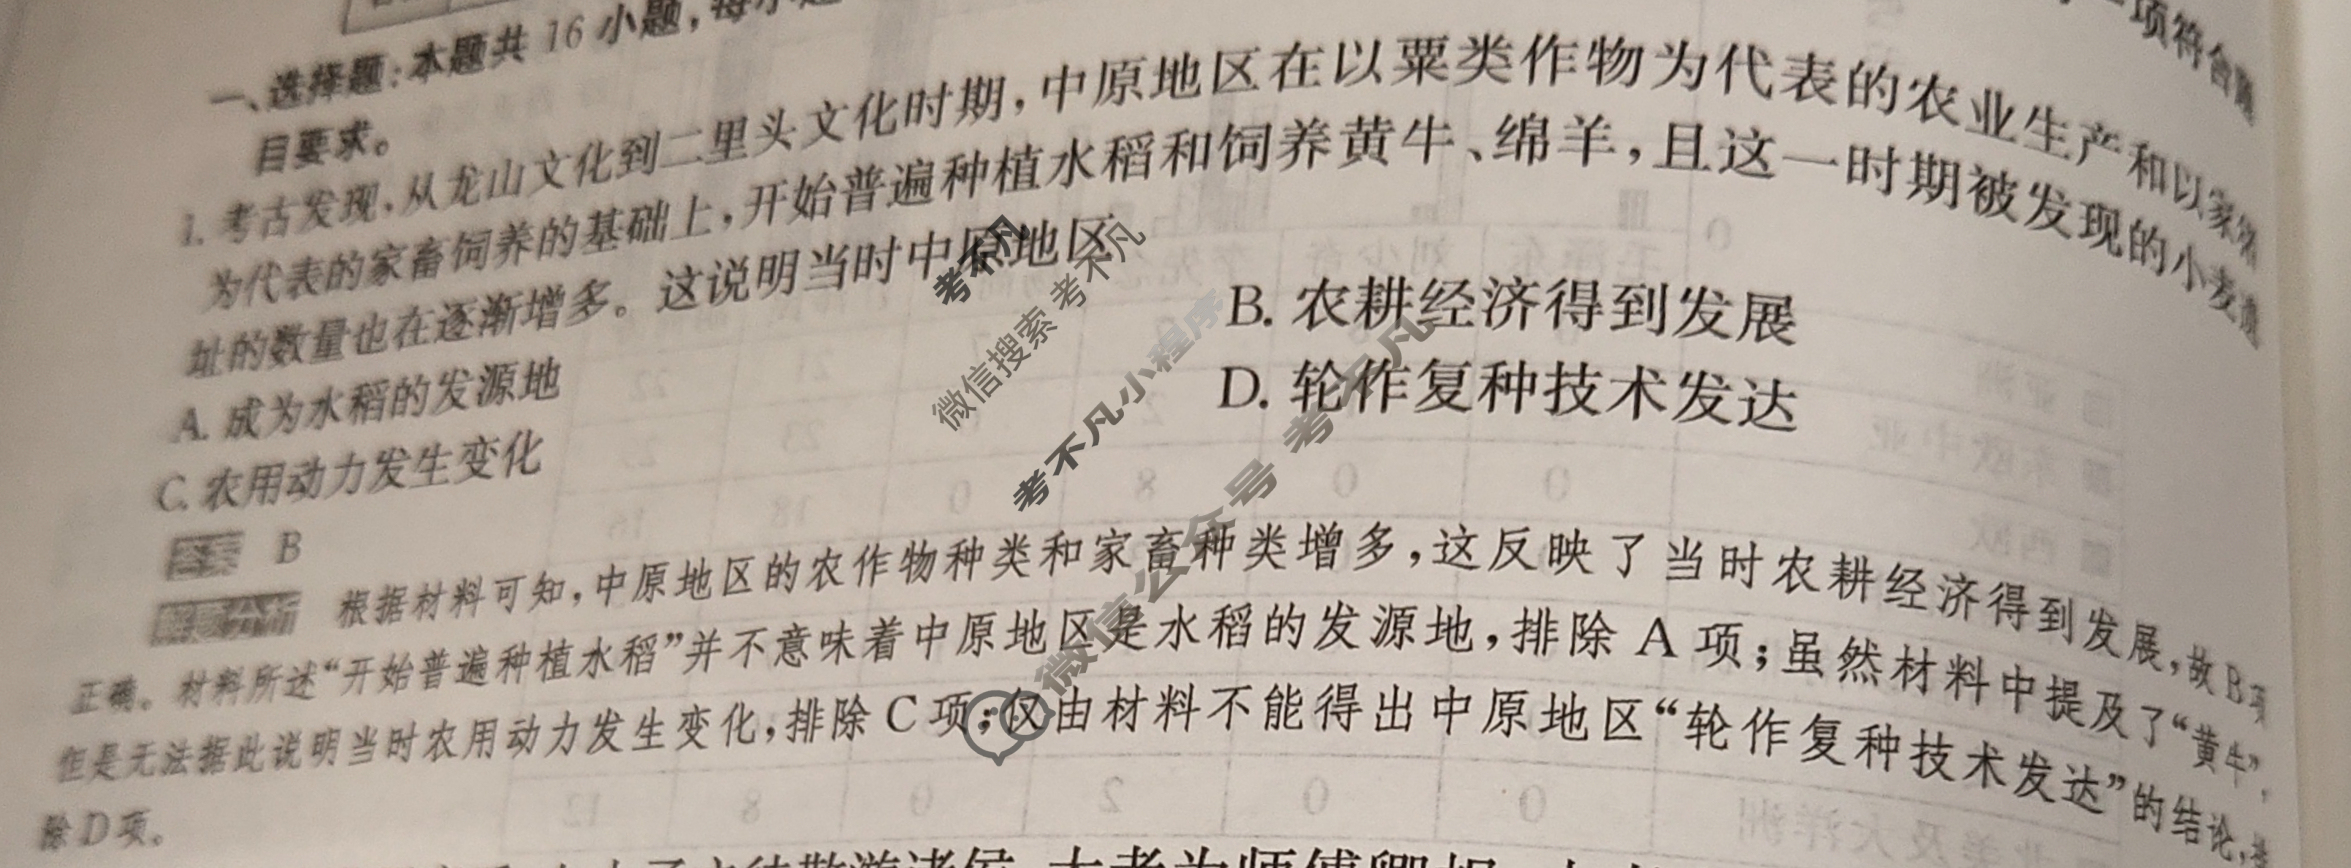 一、选择题:本题共 16 小题,每小题
一项符合题
目要求。
1. 考古发现,从龙山文化到二里头文化时期,中原地区在以粟类作物为代表的农业生产和以家猪
为代表的家畜饲养的基础上,开始普遍种植水稻和饲养黄牛、绵羊,且这一时期被发现的小麦遗
址的数量也在逐渐增多。这说明当时中原地区
A. 成为水稻的发源地
B. 农耕经济得到发展
C. 农用动力发生变化
D. 轮作复种技术发达
答案 B
解题分析 根据材料可知,中原地区的农作物种类和家畜种类增多,这反映了当时农耕经济得到发展,故B项
正确。材料所述“开始普遍种植水稻”并不意味着中原地区是水稻的发源地,排除 A 项;虽然材料中提及了“黄牛”,
但是无法据此说明当时农用动力发生变化,排除 C 项;仅由材料不能得出中原地区“轮作复种技术发达”的结论,排
除 D 项。
考不凡
微信搜索 考不凡
考不凡小程序
微信公众号 考不凡